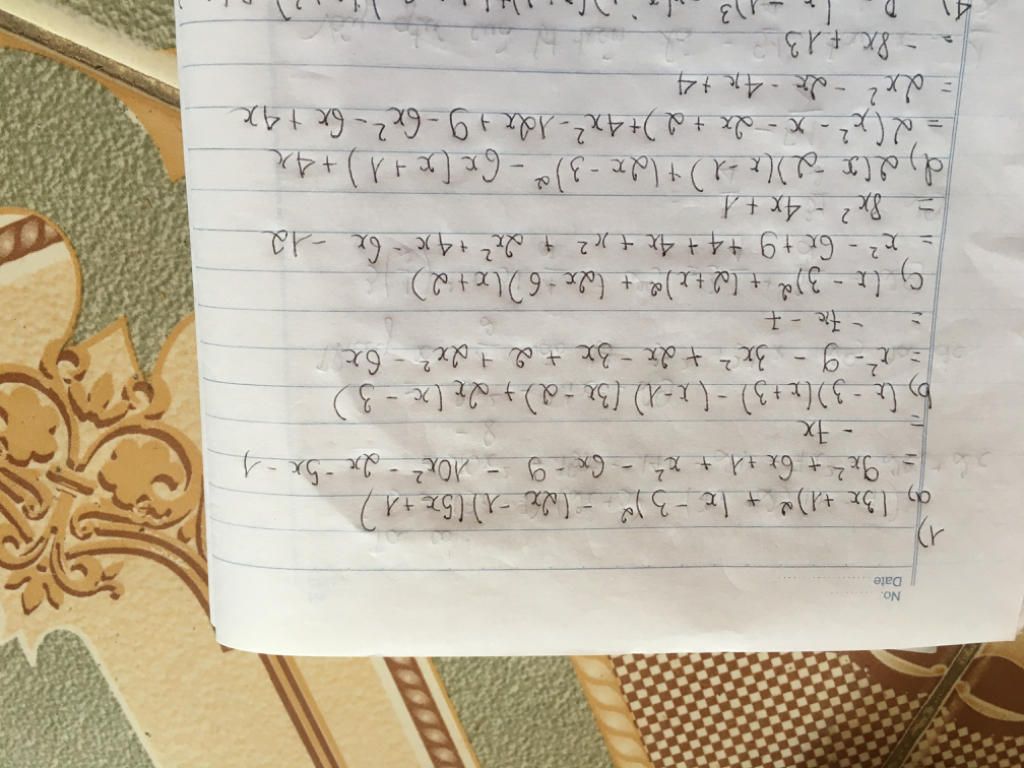 No.
Date
1)
a) (3x+1)² + (x-3)² - (2x-1)(5x+1)
= 9x² + 6x+1 + x² - 6x - 9 - 10x² - 2x - 5x - 1
= - 7x
b) (x-3)(x+3) - (x-1)(3x-2) + 2x(x-3)
= x² - 9 - 3x² + 2x - 3x + 2 + 2x² - 6x
= - 7x - 7
c) (x-3)² + (2+x)² + (2x-6)(x+2)
= x² - 6x + 9 + 4 + 4x + x² + 2x² + 4x - 6x - 12
= 8x² - 4x + 1
d) 2(x-2)(x-1) + (2x-3)² - 6x(x+1) + 4x
= 2(x² - x - 2x + 2) + 4x² - 12x + 9 - 6x² - 6x + 4x
= 2x² - 2x - 4x + 4
= - 8x + 13
4)